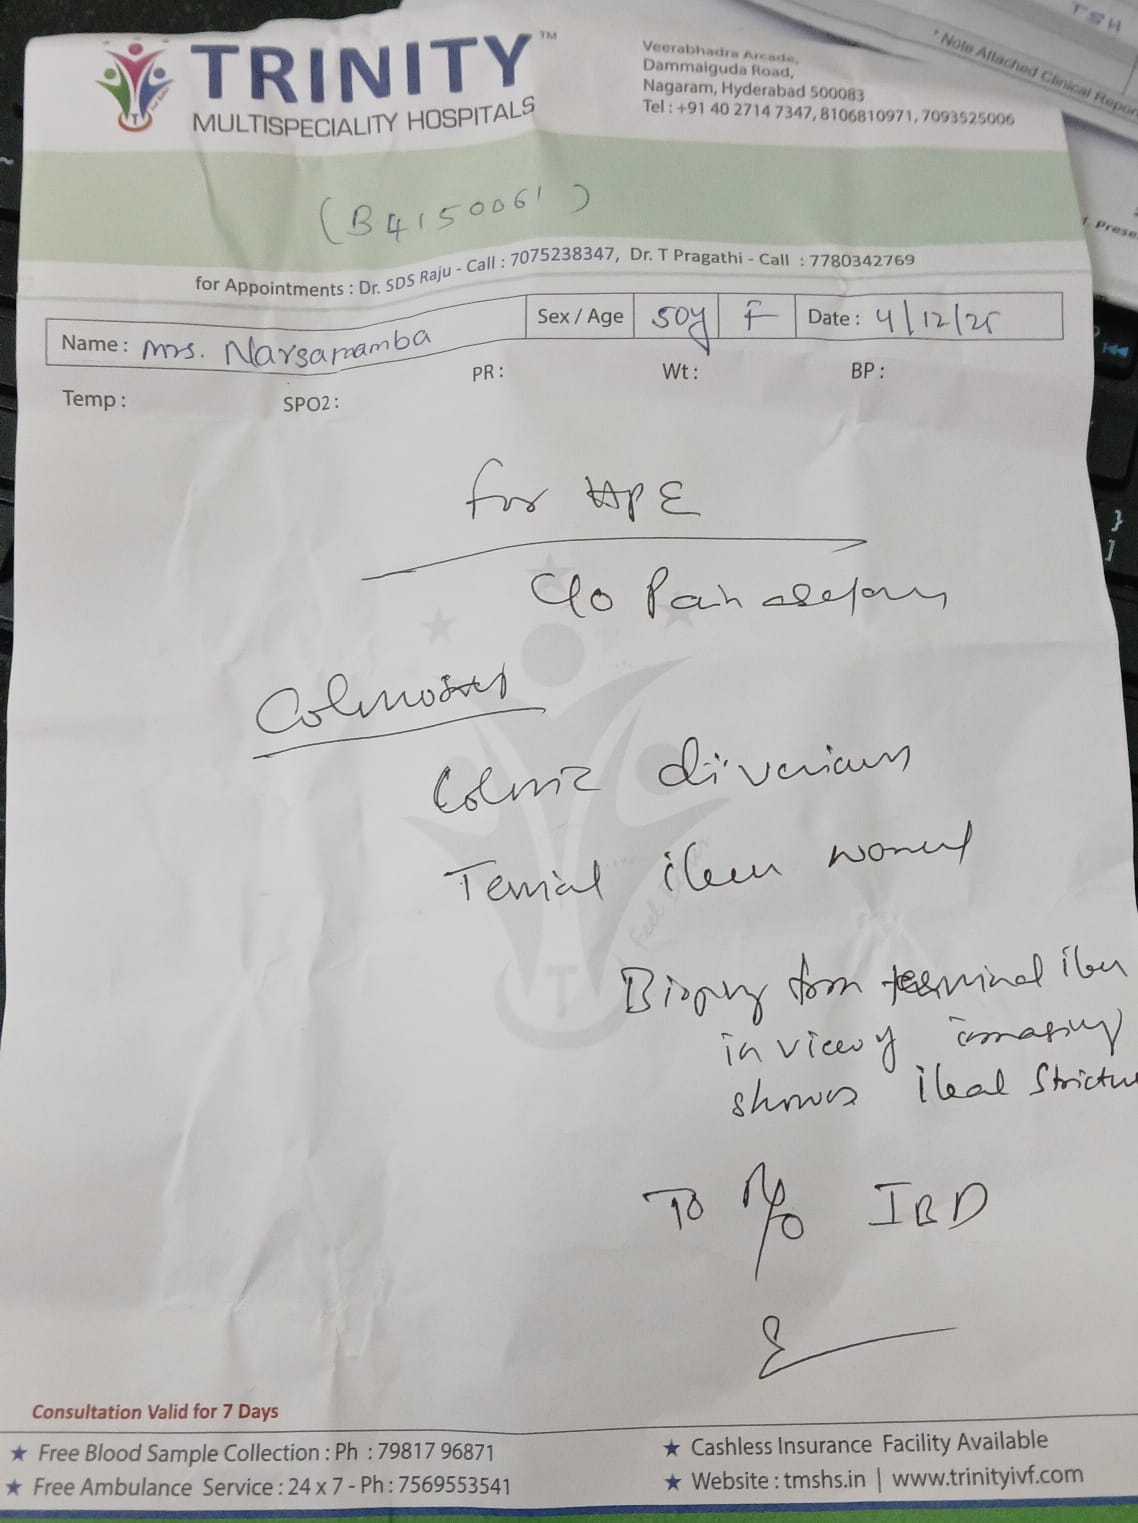 TRINITY™
MULTISPECIALITY HOSPITALS
Veerabhadra Arcade,
Dammaiguda Road,
Nagaram, Hyderabad 500083
Tel : +91 40 2714 7347, 8106810971, 7093525006
TSH
* Note Attached Clinical Repor
(B4150061)
for Appointments : Dr. SDS Raju - Call : 7075238347, Dr. T Pragathi - Call : 7780342769
Name : Mrs. Narsamamba Sex / Age 50y F Date : 4/12/25
Temp : SPO2 : PR : Wt : BP :
for HPE
C/o Pain
Colonic
Terminal ileum normal
Biopsy from terminal
in view of imaging
shows ileal Strictu
To R/O IBD
Consultation Valid for 7 Days
★ Free Blood Sample Collection : Ph : 79817 96871
★ Free Ambulance Service : 24 x 7 - Ph : 7569553541
★ Cashless Insurance Facility Available
★ Website : tmshs.in | www.trinityivf.com